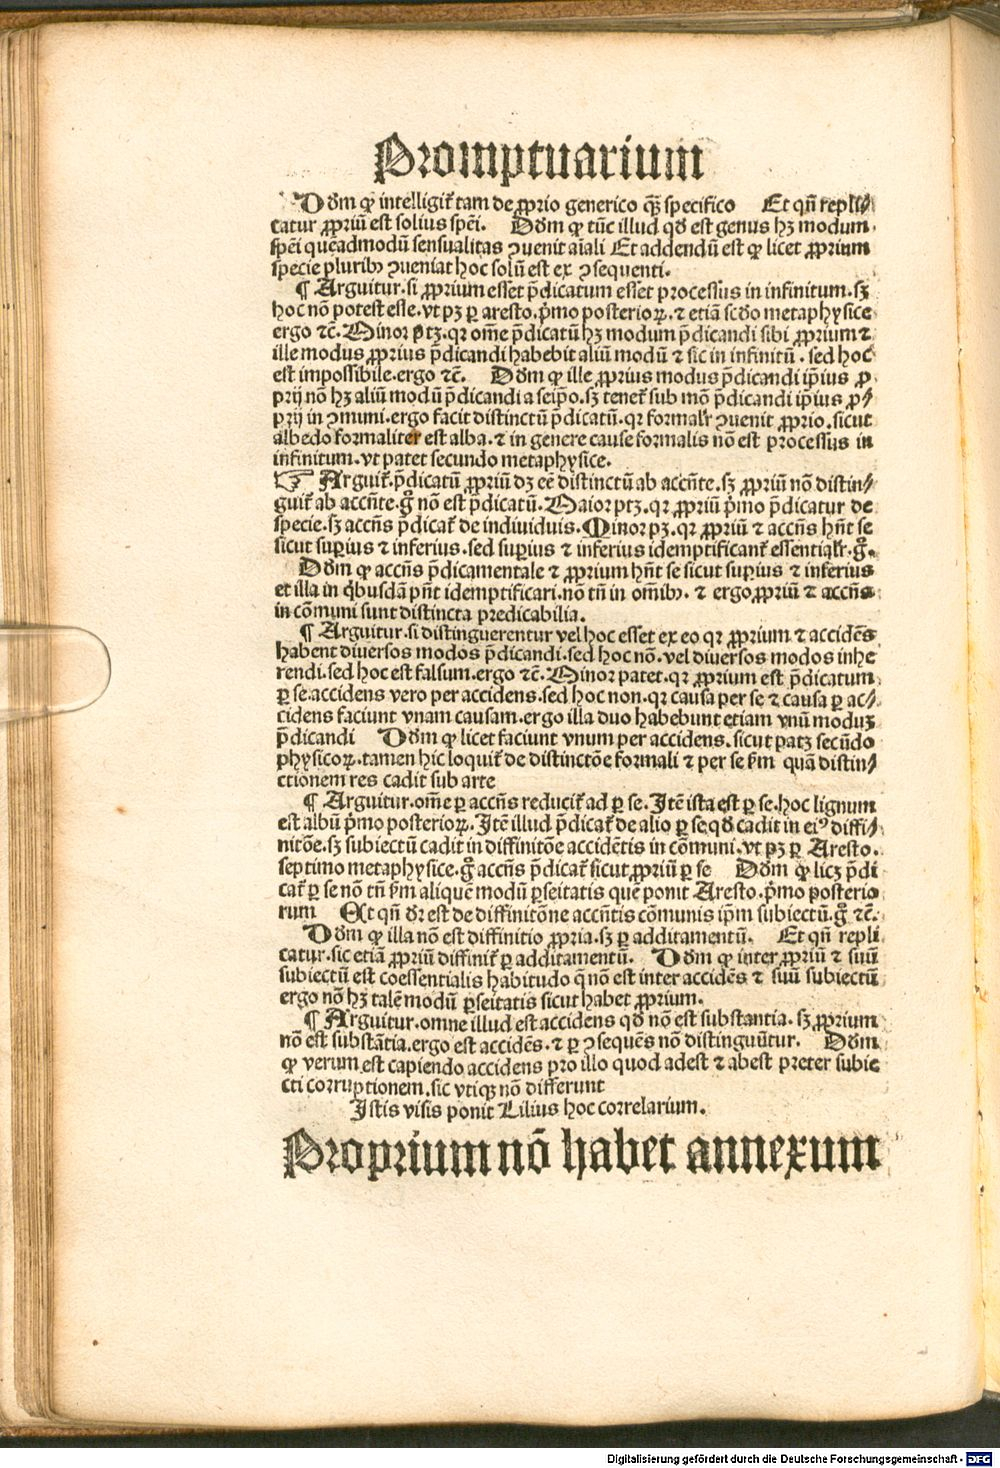 Promptuarium
Dōm ꝙ intelligit̉ tam de ꝓprio generico qȝ̄ specifico Et qn̄ repli⸗
catur ꝓpriū est solius spēi. Dōm ꝙ tūc illud qđ est genus hȝ modum
spēi queādmodū sensualitas ꝯuenit aīali Et addendū est ꝙ licet ꝓprium
specie pluribꝰ ꝯueniat hoc solū est ex ꝯsequenti.
¶ Arguitur.si ꝓprium esset p̄dicatum esset processus in infinitum.sȝ
hoc nō potest esse.vt pȝ ꝑ aresto.p̄mo posterioꝝ.⁊ etiā scđo metaphysice
ergo ⁊c̄.Minor ptȝ.qr om̄e p̄dicatū hȝ modum p̄dicandi sibi ꝓprium ⁊
ille modus ꝓprius p̄dicandi habebit aliū modū ⁊ sic in infinitū.sed hoc
est impossibile.ergo ⁊c̄. Dōm ꝙ ille ꝓprius modus p̄dicandi ip̄ius ꝓ
prij nō hȝ aliū modū p̄dicandi a seip̄o.sȝ tenet̉ sub mō p̄dicandi ip̄ius ꝓ⸗
prij in ꝯmuni.ergo facit distinctū p̄dicatū.qr formalr̄ ꝯuenit ꝓprio.sicut
albedo formaliter est alba.⁊ in genere cause formalis nō est processus in
infinitum.vt patet secundo metaphysice.
☞ Arguit̉.p̄dicatū ꝓpriū dȝ eē distinctū ab accn̄te.sȝ ꝓpriū nō distin⸗
guit̉ ab accn̄te.g̊ nō est p̄dicatū.Maior ptȝ.qr ꝓpriū p̄mo p̄dicatur de
specie.sȝ accn̄s p̄dicat̉ de indiuiduis.Minor pȝ.qr ꝓpriū ⁊ accn̄s hn̄t se
sicut suꝑius ⁊ inferius.sed suꝑius ⁊ inferius idemptificant̉ essentialr̄.g̊.
Dōm ꝙ accn̄s p̄dicamentale ⁊ ꝓprium hn̄t se sicut suꝑius ⁊ inferius
et illa in q̇busdā pn̄t idemptificari.nō tn̄ in om̄ibꝰ.⁊ ergo ꝓpriū ⁊ accn̄s
in cōmuni sunt distincta predicabilia.
¶ Arguitur.si distinguerentur vel hoc esset ex eo qr ꝓprium ⁊ accidēs
habent diuersos modos p̄dicandi.sed hoc nō.vel diuersos modos inhe
rendi.sed hoc est falsum.ergo ⁊c̄.Minor patet.qr ꝓprium est p̄dicatum
ꝑ se.accidens vero per accidens.sed hoc non.qr causa per se ⁊ causa ꝑ ac⸗
cidens faciunt vnam causam.ergo illa duo habebunt etiam vnū moduȝ
p̄dicandi Dōm ꝙ licet faciunt vnum per accidens.sicut patȝ secūdo
physicoꝝ.tamen hic loquit̉ de distinctōe formali ⁊ per se ẜm quā distin⸗
ctionem res cadit sub arte
¶ Arguitur.om̄e ꝑ accn̄s reducit̉ ad ꝑ se.Itē ista est ꝑ se.hoc lignum
est albū p̄mo posterioꝝ.Itē illud p̄dicat̉ de alio ꝑ se qđ cadit in eiꝰ diffi⸗
nitōe.sȝ subiectū cadit in diffinitōe accidētis in cōmuni.vt pȝ ꝑ Aresto.
septimo metaphysice.g̊ accn̄s p̄dicat̉ sicut ꝓpriū ꝑ se Dōm ꝙ licȝ p̄di
cat̉ ꝑ se nō tn̄ ẜm aliquē modū ꝑseitatis quē ponit Aresto.p̄mo posterio
rum Et qn̄ dr̄ est de diffinitōne accn̄tis cōmunis ip̄m subiectū.g̊ ⁊c̄.
Dōm ꝙ illa nō est diffinitio ꝓpria.sȝ ꝑ additamentū. Et qn̄ repli
catur.sic etiā ꝓpriū diffinit̉ ꝑ additamentū. Dōm ꝙ inter ꝓpriū ⁊ suū
subiectū est coessentialis habitudo q̄ nō est inter accidēs ⁊ suū subiectū
ergo nō hȝ talē modū ꝑseitatis sicut habet ꝓprium.
¶ Arguitur.omne illud est accidens qđ nō est substantia.sȝ ꝓprium
nō est substātia.ergo est accidēs.⁊ ꝑ ꝯsequēs nō distinguūtur. Dōm
ꝙ verum est capiendo accidens pro illo quod adest ⁊ abest preter subie
cti corruptionem.sic vtiqȝ nō differunt
Istis visis ponit Lilius hoc correlarium.
Proprium nō habet annexum
Digitalisierung gefördert durch die Deutsche Forschungsgemeinschaft - DFG